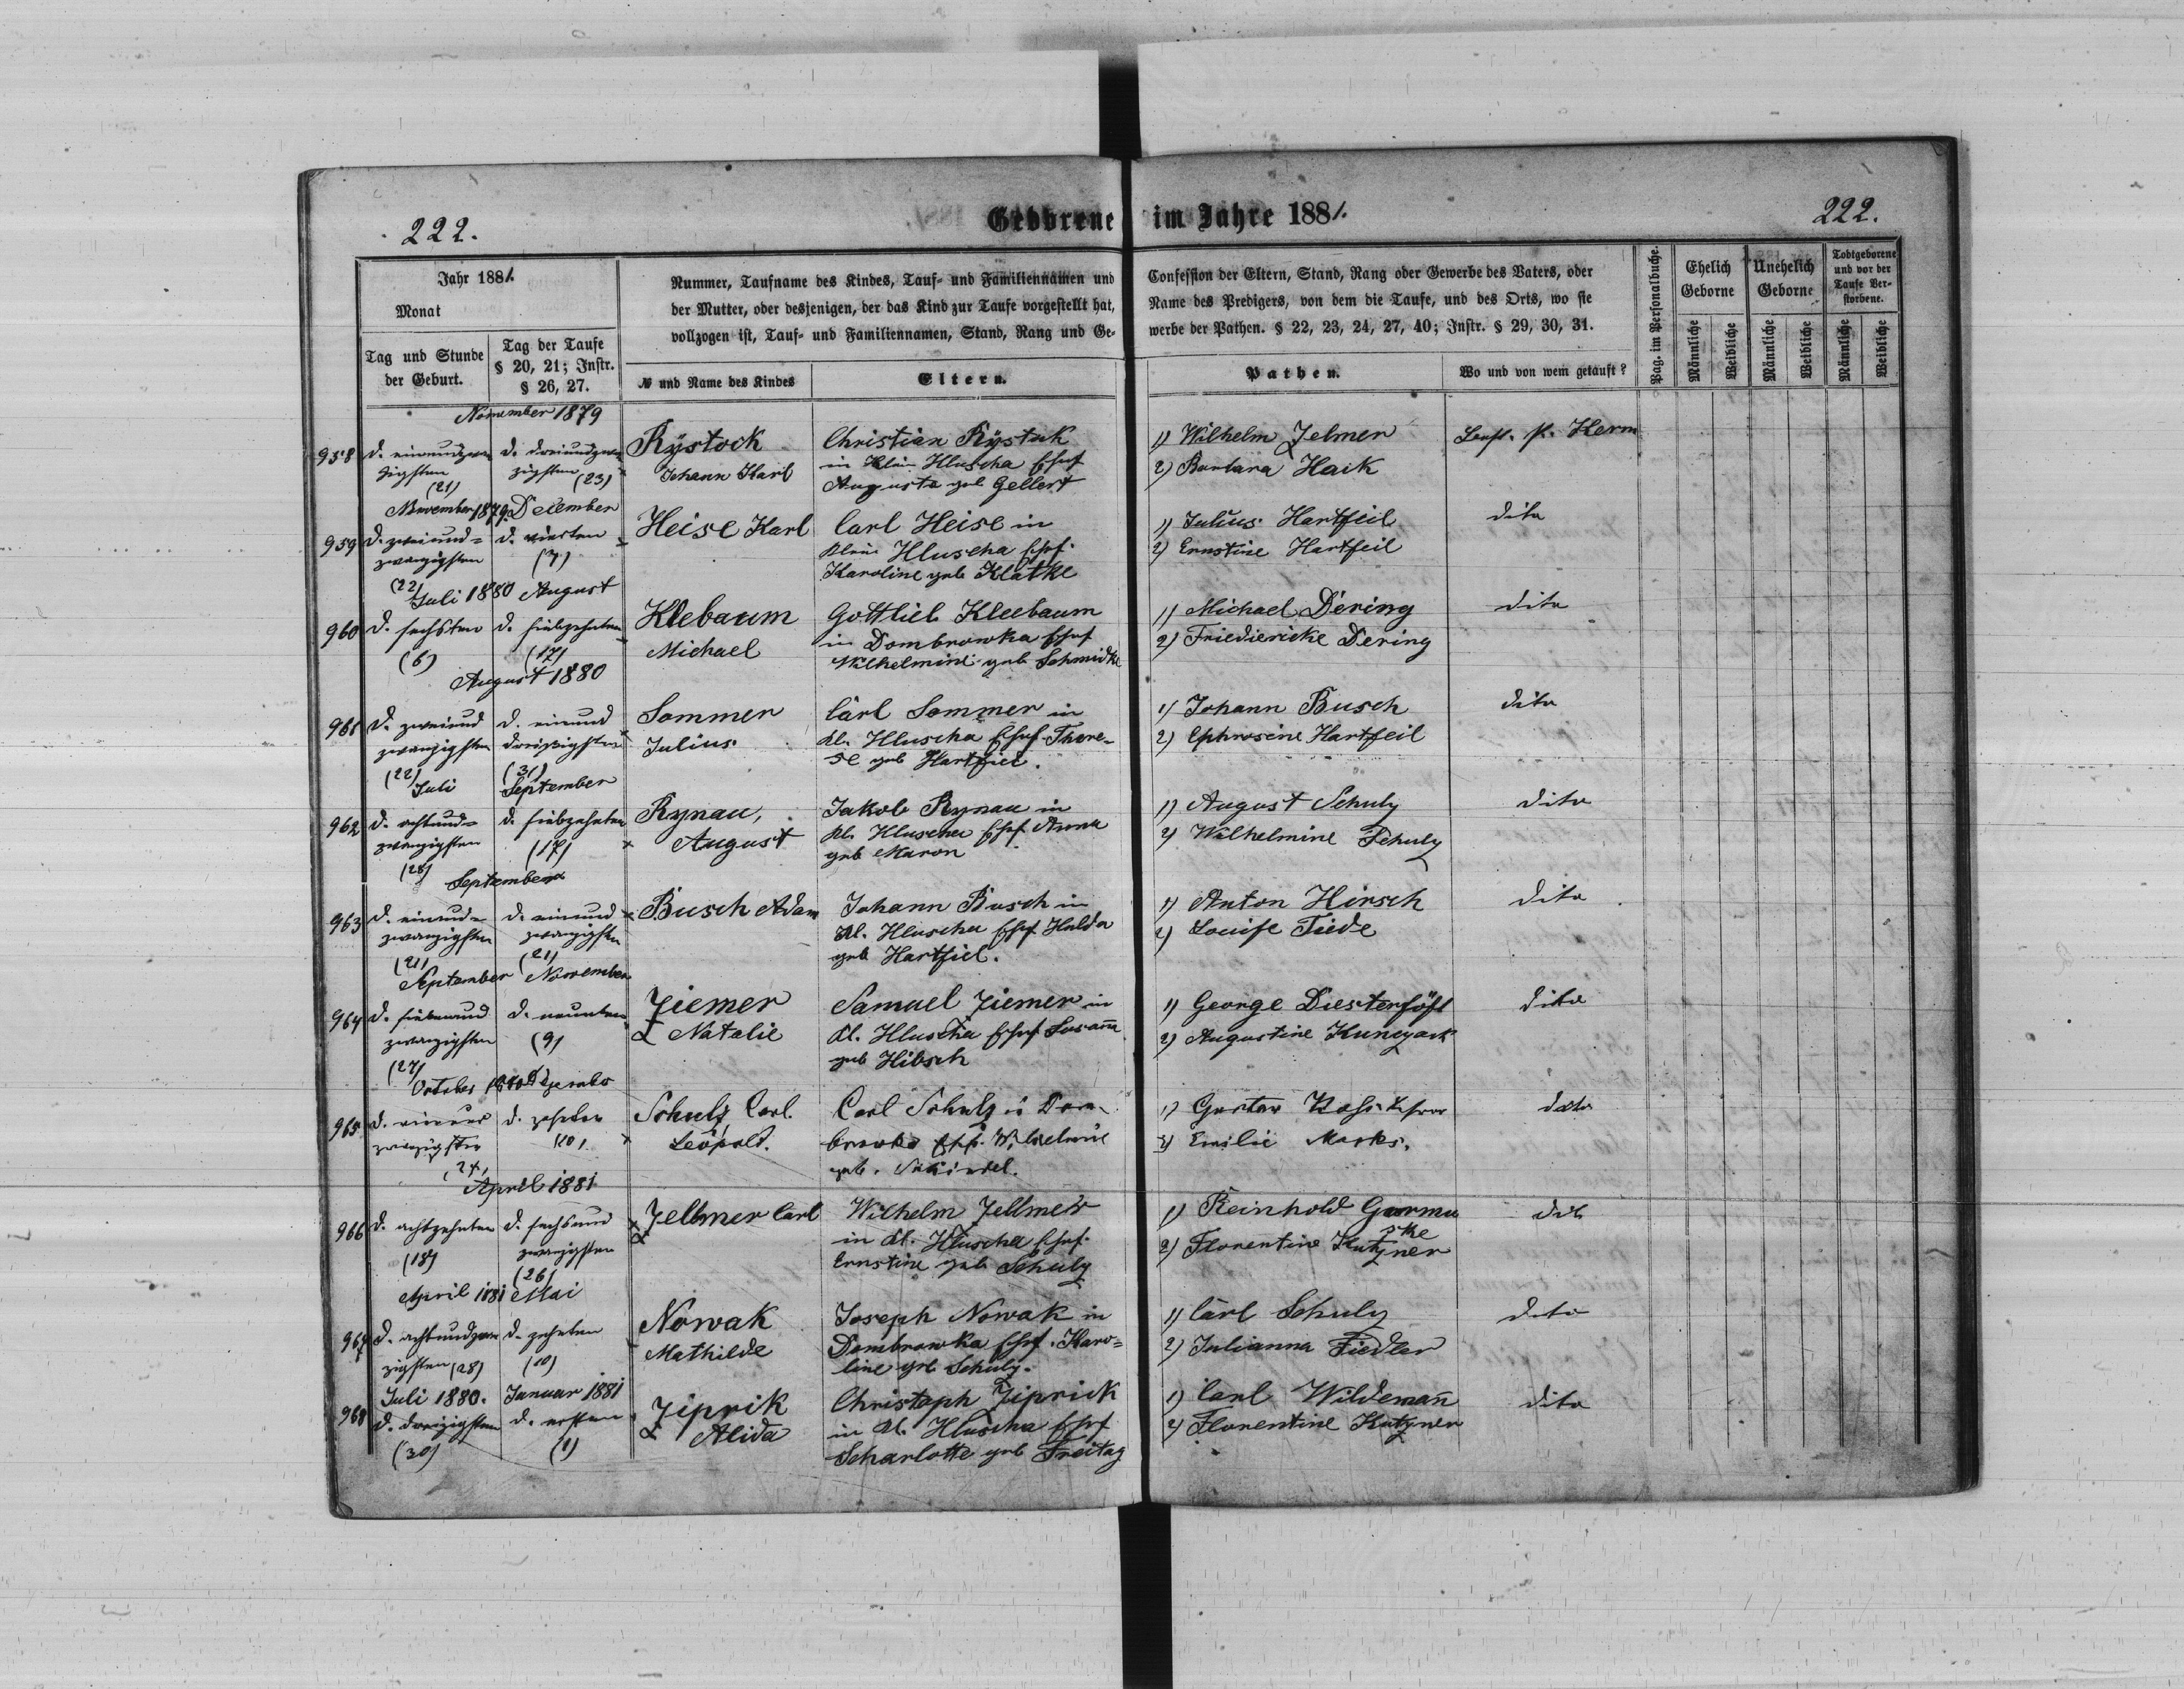 222.
Geborene im Jahre 1881.
222.
Jahr 1881.
Monat
Tag und Stunde
der Geburt.
Tag der Taufe
§ 20, 21; Instr.
§ 26, 27.
Nummer, Taufname des Kindes, Tauf- und Familiennamen und
der Mutter, oder desjenigen, der das Kind zur Taufe vorgestellt hat,
vollzogen ist, Tauf- und Familiennamen, Stand, Rang und Ge-
№ und Name des Kindes
Eltern.
Confession der Eltern, Stand, Rang oder Gewerbe des Vaters, oder
Name des Predigers, von dem die Taufe, und des Orts, wo sie
werbe der Pathen. § 22, 23, 24, 27, 40; Instr. § 29, 30, 31.
Pathen.
Wo und von wem getauft?
Pag. im Personalbuche.
Ehelich
Geborne
Unehelich
Geborne
Todtgeborene
und vor der
Taufe Ver-
storbene.
Männliche
Weibliche
Männliche
Weibliche
Männliche
Weibliche
November 1879
958
d. einundzwan
zigsten
(21)
d. dreiundzwan
zigsten (23)
Rÿstock
Johann Karl
Christian Rÿstuk
in Klein Hluscha Ehef
Augusta geb Gellert
1) Wilhelm Zelmer
2) Barbara Haik
P. Herm
November 1879 December
959
d. zweiund=
zwanzigsten
(22)
d. vierten
Heise Karl
Carl Heise in
Klein Hluscha Ehef.
Karoline geb Klatke
1) Julius Hartfeil
2) Ernstine Hartfeil
dito
Juli 1880 August
960
d. sechsten
(6)
d. siebzehnten
(17)
Klebaum
Michael
Gottlieb Kleebaum
in Dombrowka Ehef
Wilhelmine geb Schmidke
1) Michael Dering
2) Friediericke Dering
dito
August 1880
961
d. zweiund
zwanzigsten
(22)
d. einund
dreißigsten
(31)
Sommer
Julius
Carl Sommer in
Kl. Hluscha Ehef There-
se geb Hartfiel.
1) Johann Busch
2) Ephrosine Hartfeil
dito
Juli September
962
d. achtund=
zwanzigsten
(28)
d. siebzehnten
(17)
Rynau,
August
Jakob Rynau in
Kl. Hluscha Ehef Anna
geb Maron
1) August Schulz
2) Wilhelmine Schulz
dito
September
963
d. einund=
zwanzigsten
(21)
d. einund
zwanzigsten
(21)
Busch Adam
Johann Busch in
Kl. Hluscha Ehef Hulda
geb Hartfiel.
1) Anton Hirsch
2) Louise Tiede
dito
September November
964
d. siebenund
zwanzigsten
(27)
d. neunten
(9)
Ziemer
Natalie
Samuel Ziemer in
Kl. Hluscha Ehef Susanna
geb Hibsch
1) George Diesterhöft
2) Augustine
dito
October 1880
965
zwanzigsten
d. zehnten
10,
Schulz Carl
Leopold.
Carl Schulz in Dom-
browka Ehf. Wilhelmine
geb.
1) Gustav
2) Emilie Marks.
dito
April 1881
966
d. achtzehnten
(18)
d. sechsund
zwanzigsten
(26)
Zellmer Carl
Wilhelm Zellmer
in Kl. Hluscha Ehef.
Ernstine geb Schulz
1) Reinhold Garmu
ske
2) Florentine Kutzner
dito
April 1881 Mai
967
d. achtundzwan
zigsten (28)
d. zehnten
(10)
Nowak
Mathilde
Joseph Nowak in
Dombrowka Ehef. Karo=
line geb Schulz.
1) Carl Schulz
2) Julianna Fiedler
dito
Juli 1880. Januar 1881
968
d. dreizigsten
(30)
d. ersten
(1)
Ziprik
Alida
Christoph Ziprick
in Kl. Hluscha Ehef
Scharlotte geb Freitag
1) Carl Wildemann
2) Florentine Kutzner
dito